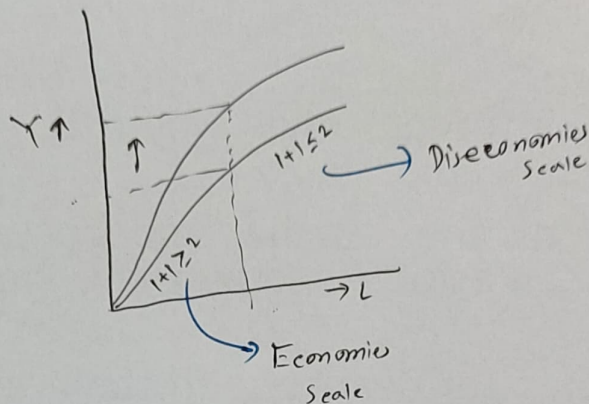 Y ↑
↑
1+1 ≤ 2
Diseconomies
Scale
1+1 ≥ 2
→ L
Economies
Scale